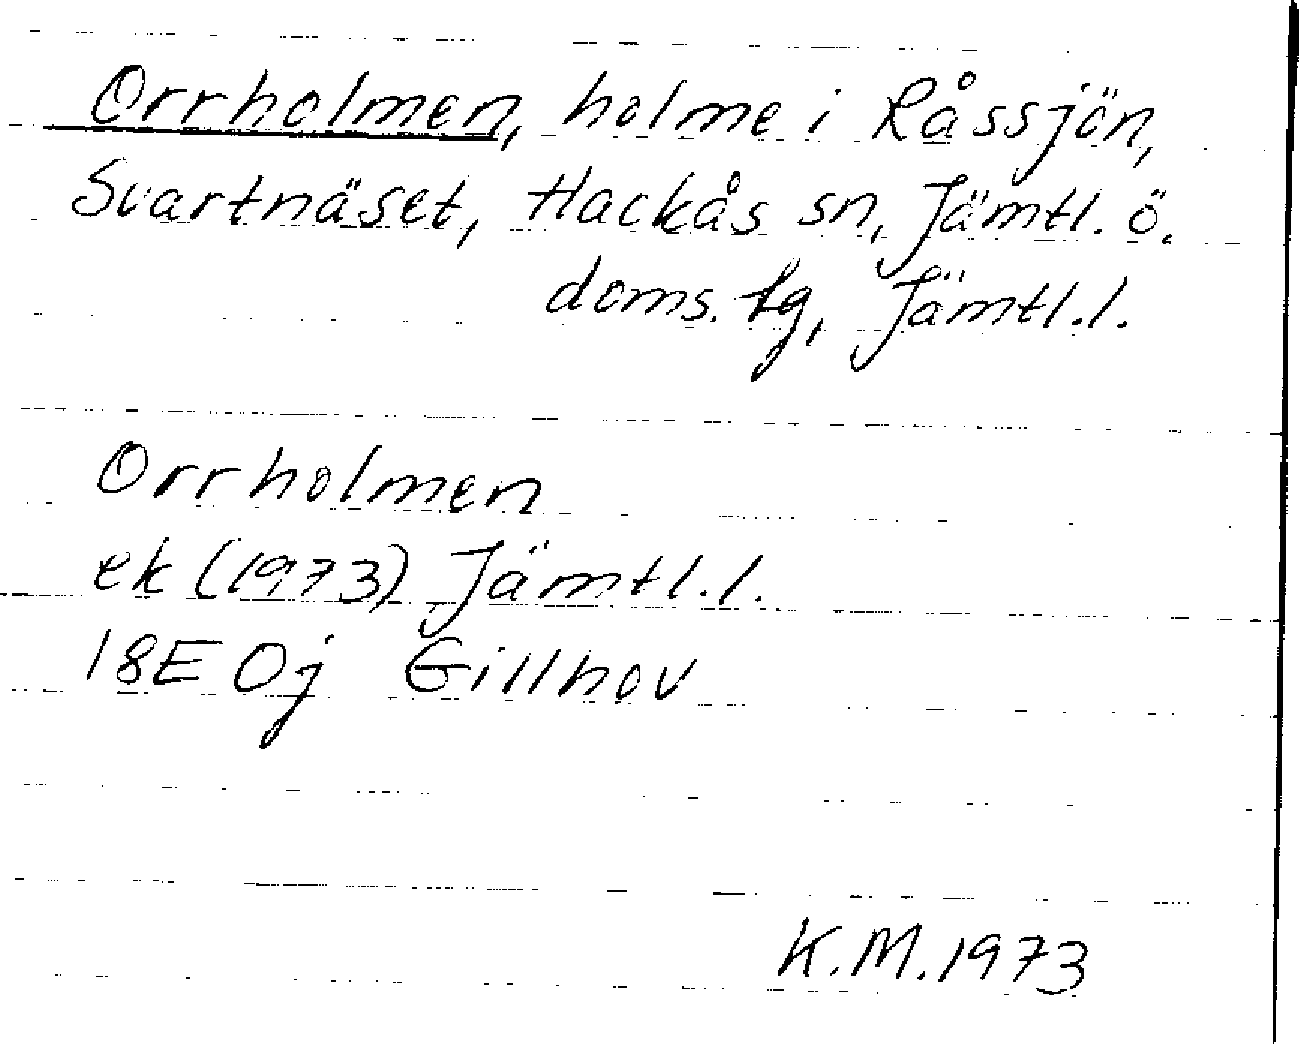 Orrholmen, holme i Råssjön,
Svartnäset, Hackås sn, Jämtl. ö.
doms. tg, Jämtl.l.
Orrholmen
ek (1973) Jämtl.l.
18E 0j Gillhov
K.M. 1973